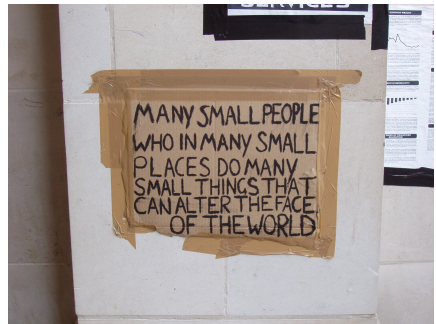 SERVICES
MANY SMALL PEOPLE
WHO IN MANY SMALL
PLACES DO MANY
SMALL THINGS THAT
CAN ALTER THE FACE
OF THE WORLD